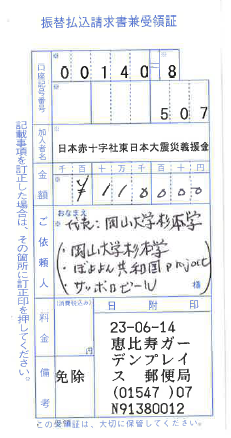 振替払込請求書兼受領証
口座記号番号
00140-8
507
加入者名
日本赤十字社東日本大震災義援金
金額
千 百 十 万 千 百 十 円
¥110000
ご依頼人
おなまえ
代表：岡山大学杉本学
・岡山大学杉本学
・ぽよよん共和国project
・サッポロビール
様
料金
(消費税込み)
円
備考
免除
日附印
23-06-14
恵比寿ガー
デンプレイ
ス 郵便局
(01547 )07
N91380012
記載事項を訂正した場合は、その箇所に訂正印を押してください。
この受領証は、大切に保管してください。